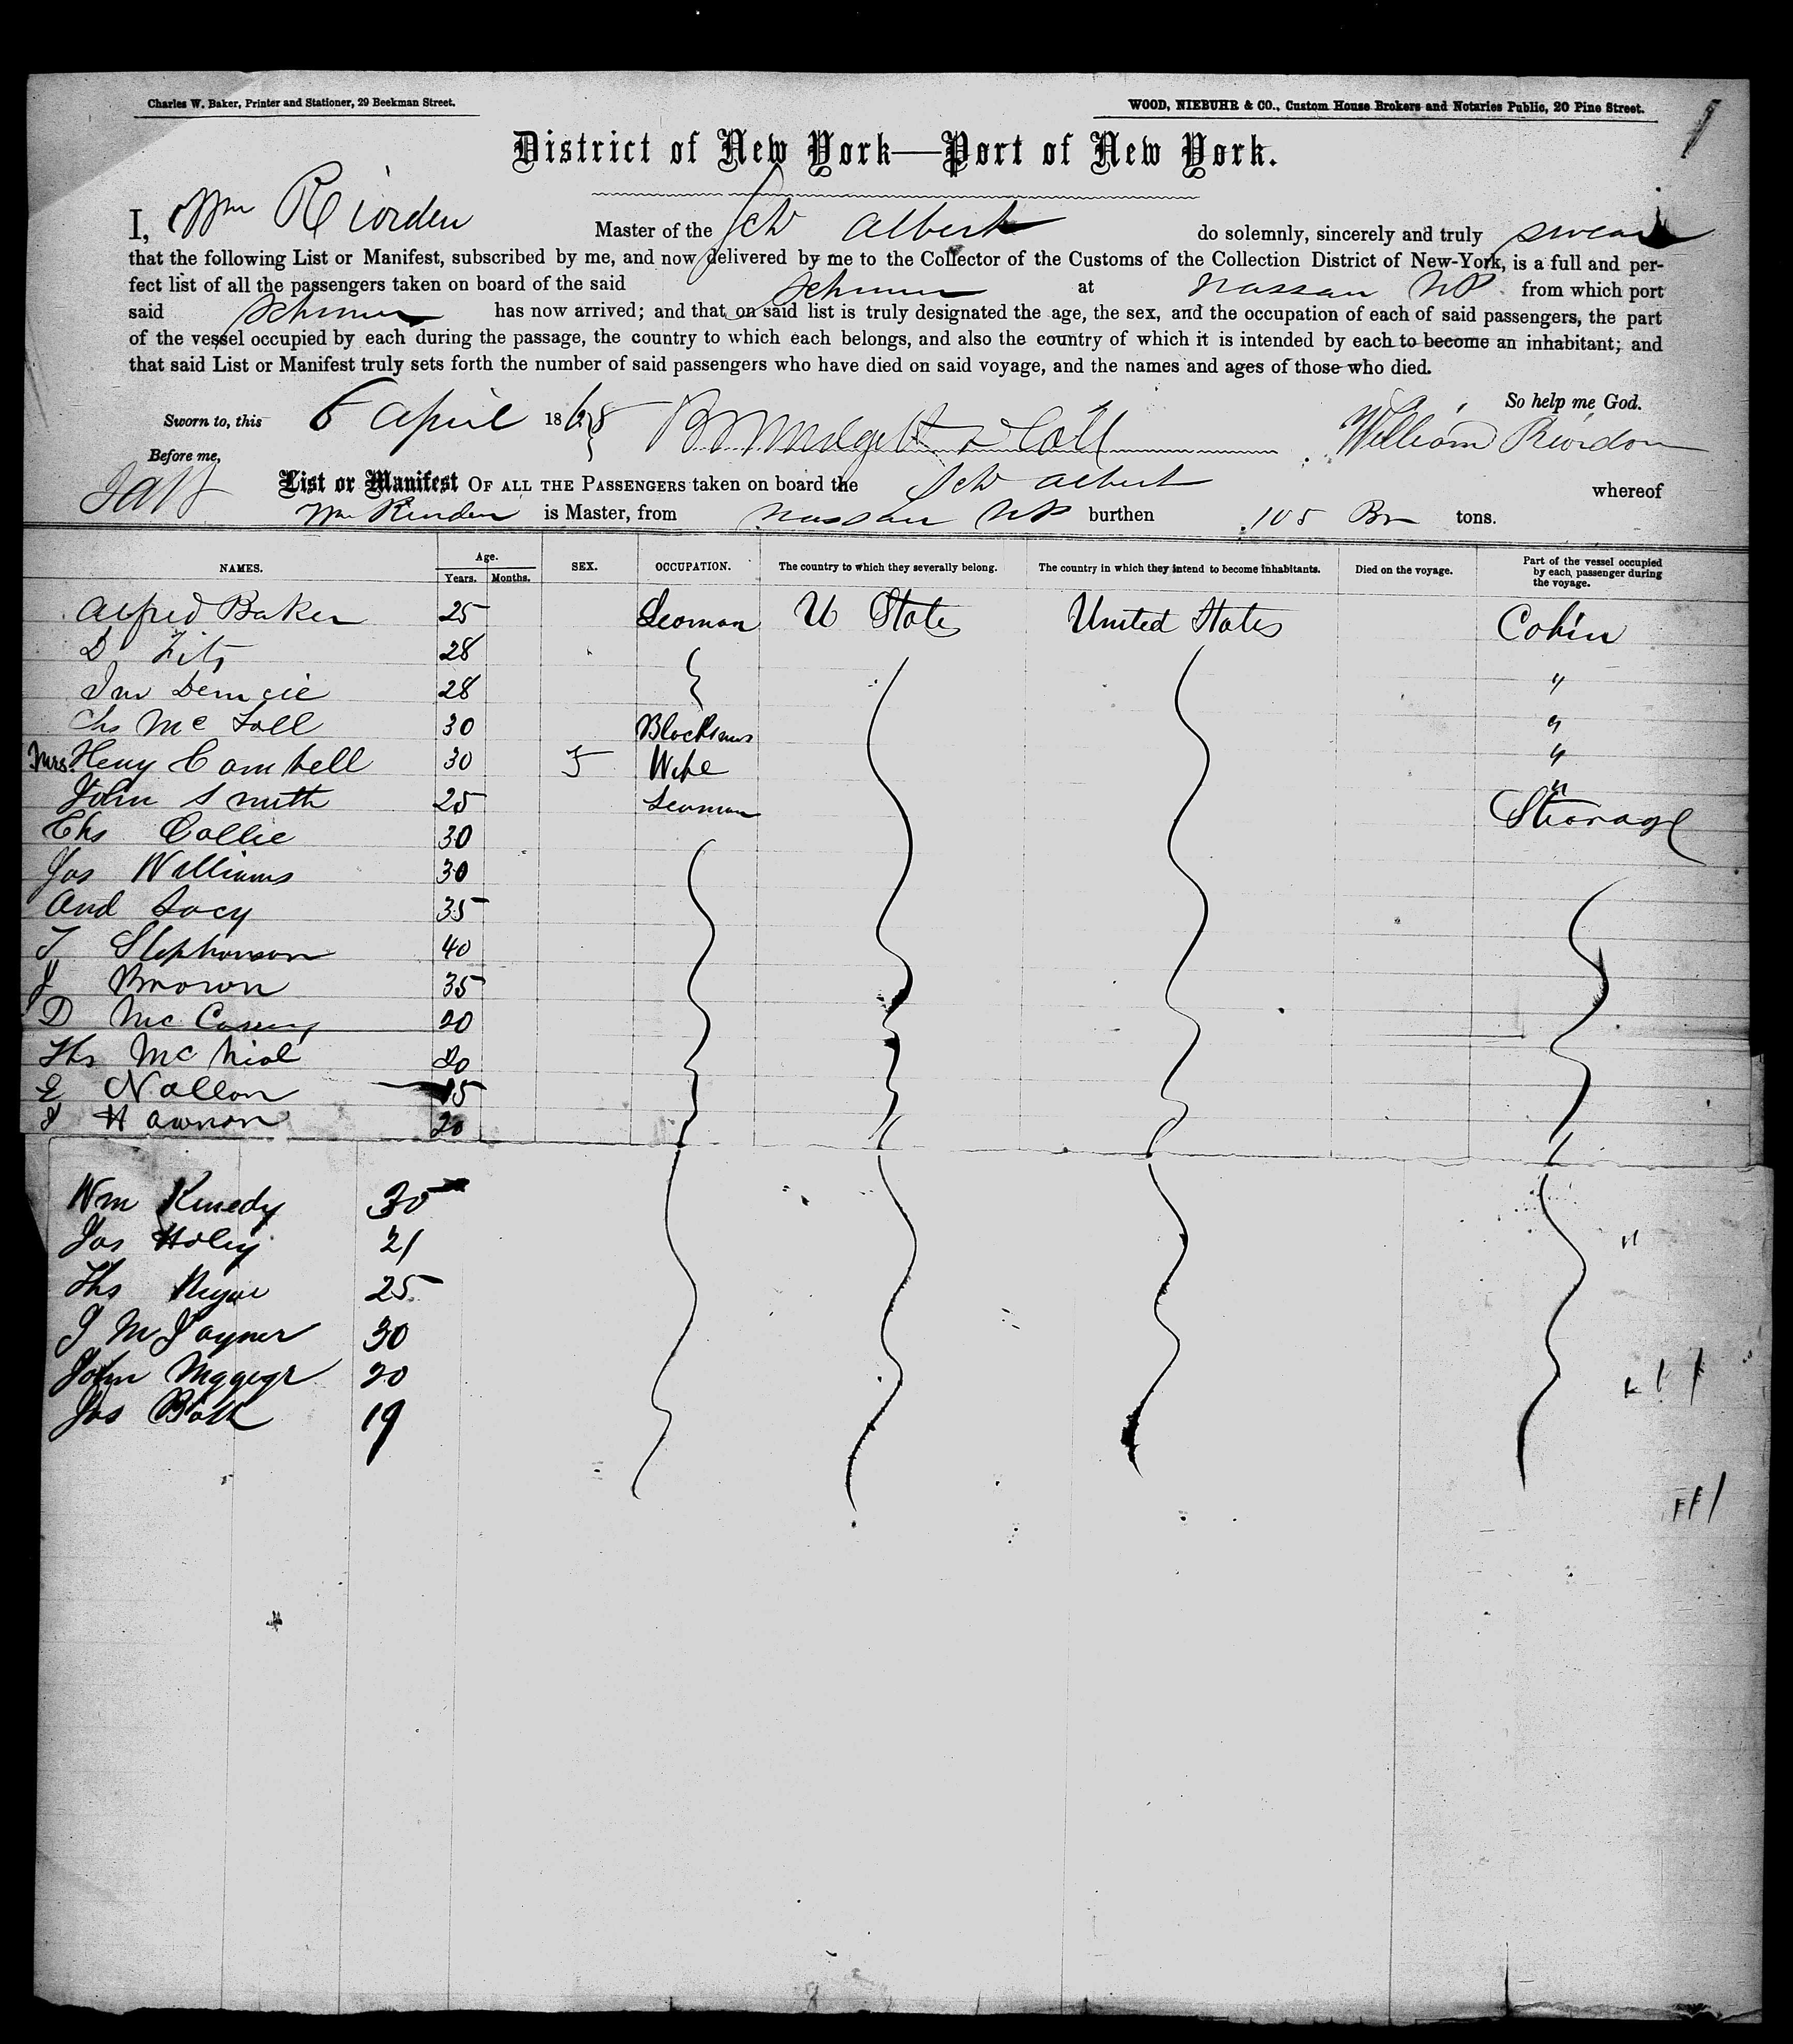 Charles W. Baker, Printer and Stationer, 29 Beekman Street.
WOOD, NIEBUHR & CO., Custom House Brokers and Notaries Public, 20 Pine Street.
District of New York—Port of New York.
I, Wm Riorden Master of the Sch Albert do solemnly, sincerely and truly swear
that the following List or Manifest, subscribed by me, and now delivered by me to the Collector of the Customs of the Collection District of New-York, is a full and per-
fect list of all the passengers taken on board of the said Schuner at Nassau NP. from which port
said Schuner has now arrived; and that on said list is truly designated the age, the sex, and the occupation of each of said passengers, the part
of the vessel occupied by each during the passage, the country to which each belongs, and also the country of which it is intended by each to become an inhabitant; and
that said List or Manifest truly sets forth the number of said passengers who have died on said voyage, and the names and ages of those who died.
So help me God.
Sworn to, this 6 April 186 William Riordon
Before me,
List or Manifest OF ALL THE PASSENGERS taken on board the Sch Albert whereof
Wm Riorden is Master, from Nassau NP burthen 105 tons.
NAMES. Age. Years. Months. SEX. OCCUPATION. The country to which they severally belong. The country in which they intend to become inhabitants. Died on the voyage. Part of the vessel occupied by each passenger during the voyage.
Alfred Baker 25 Seaman U States United States Cabin
D Fits 28
28 "
Chs Mc Fall 30 "
Mrs. Heny Cambell 30 F Wife "
John Smith 25 Seaman "
Chs Collie 30
Jas Williams 30
And Lacy 35
T Stephenson 40
J Brown 35
D Mc 20
Ths Mc Niel 20
E Nallon 15
20
Wm Kenedy 30
Jas Holey 21
Ths 25
J M Jayner 30
John 20
Jas 19